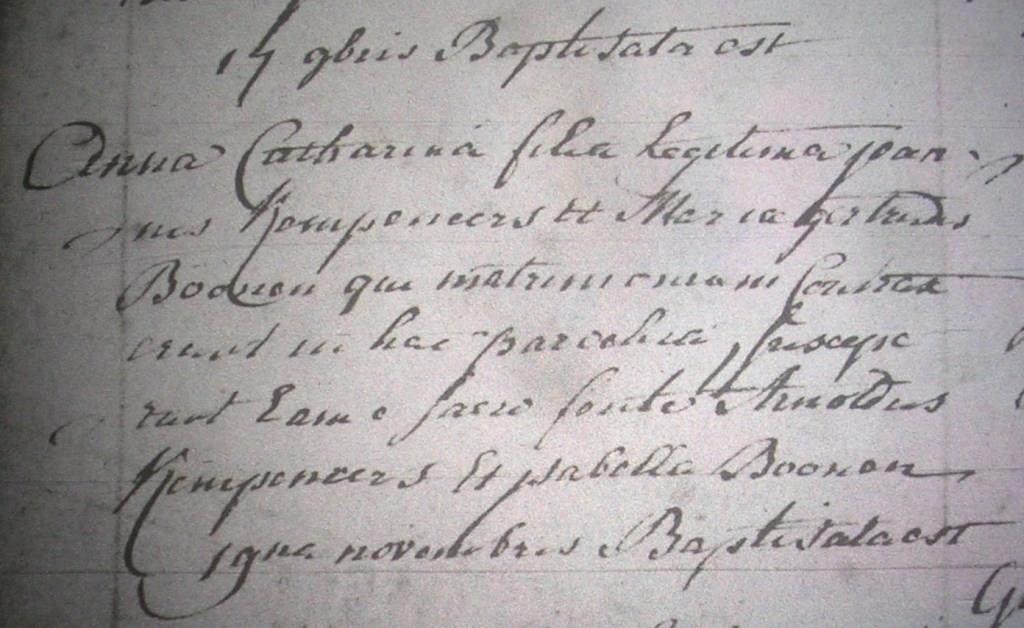 17 9bris Baptisata est
Anna Catharina filia Legitima joan-
nis Kempeneers et Maria gertrudis
Boonen qui matrimonium Contrax
erunt in hac parochia, Suscepe
runt Eam e sacro fonte Arnoldus
Kempeneers Et ysabella Boonen
19na novembris Baptisata est